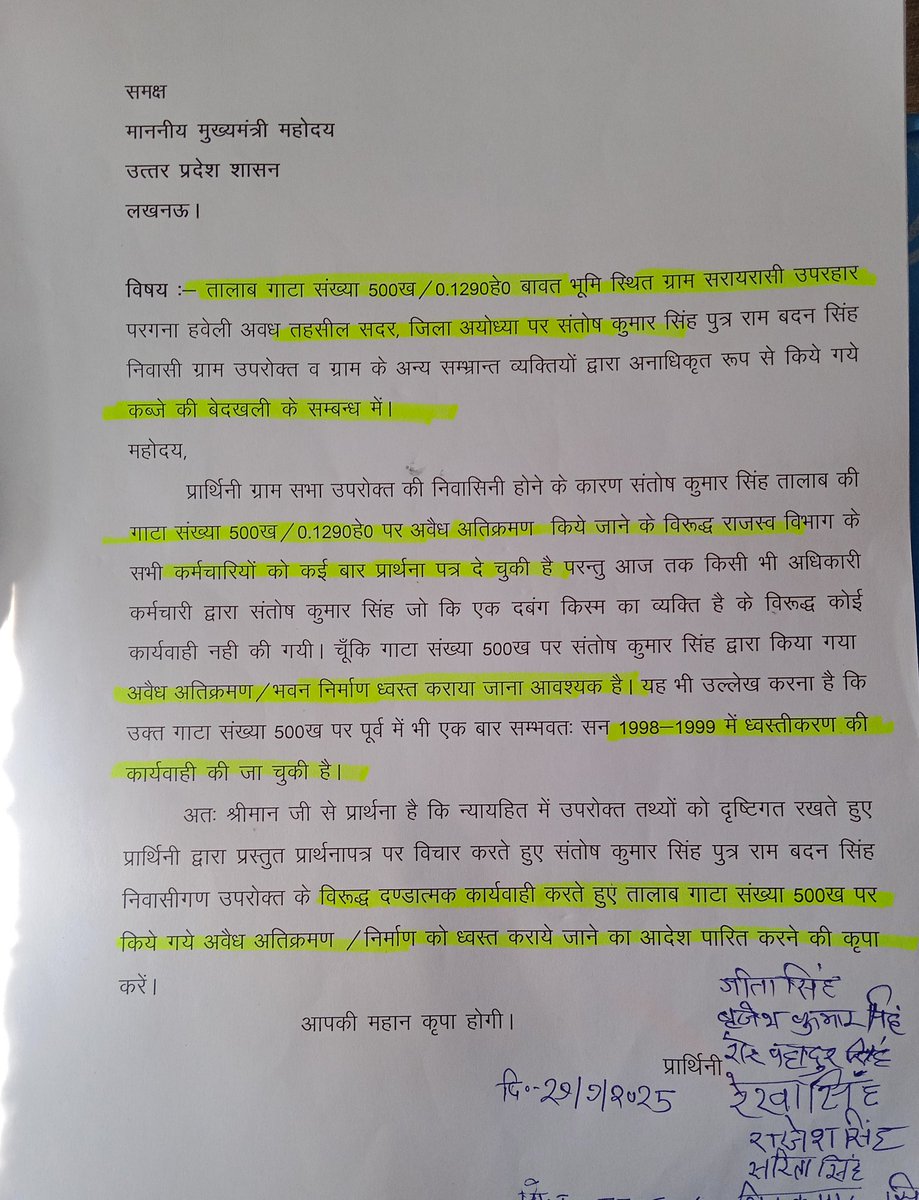 समक्ष
माननीय मुख्यमंत्री महोदय
उत्तर प्रदेश शासन
लखनऊ।
विषय :– तालाब गाटा संख्या 500ख/0.1290हे0 बावत भूमि स्थित ग्राम सरायरासी उपरहार
परगना हवेली अवध तहसील सदर, जिला अयोध्या पर संतोष कुमार सिंह पुत्र राम बदन सिंह
निवासी ग्राम उपरोक्त व ग्राम के अन्य सम्भ्रान्त व्यक्तियों द्वारा अनाधिकृत रूप से किये गये
कब्जे की बेदखली के सम्बन्ध में।
महोदय,
प्रार्थिनी ग्राम सभा उपरोक्त की निवासिनी होने के कारण संतोष कुमार सिंह तालाब की
गाटा संख्या 500ख/0.1290हे0 पर अवैध अतिक्रमण किये जाने के विरूद्ध राजस्व विभाग के
सभी कर्मचारियों को कई बार प्रार्थना पत्र दे चुकी है परन्तु आज तक किसी भी अधिकारी
कर्मचारी द्वारा संतोष कुमार सिंह जो कि एक दबंग किस्म का व्यक्ति है के विरूद्ध कोई
कार्यवाही नही की गयी। चूँकि गाटा संख्या 500ख पर संतोष कुमार सिंह द्वारा किया गया
अवैध अतिक्रमण/भवन निर्माण ध्वस्त कराया जाना आवश्यक है। यह भी उल्लेख करना है कि
उक्त गाटा संख्या 500ख पर पूर्व में भी एक बार सम्भवतः सन 1998–1999 में ध्वस्तीकरण की
कार्यवाही की जा चुकी है।
अतः श्रीमान जी से प्रार्थना है कि न्यायहित में उपरोक्त तथ्यों को दृष्टिगत रखते हुए
प्रार्थिनी द्वारा प्रस्तुत प्रार्थनापत्र पर विचार करते हुए संतोष कुमार सिंह पुत्र राम बदन सिंह
निवासीगण उपरोक्त के विरूद्ध दण्डात्मक कार्यवाही करते हुएं तालाब गाटा संख्या 500ख पर
किये गये अवैध अतिक्रमण /निर्माण को ध्वस्त कराये जाने का आदेश पारित करने की कृपा
करें।
आपकी महान कृपा होगी।
गीता सिंह
बृजेश कुमार सिंह
शेर बहादुर सिंह
प्रार्थिनी
रेखा सिंह
राजेश सिंह
सरिता सिंह